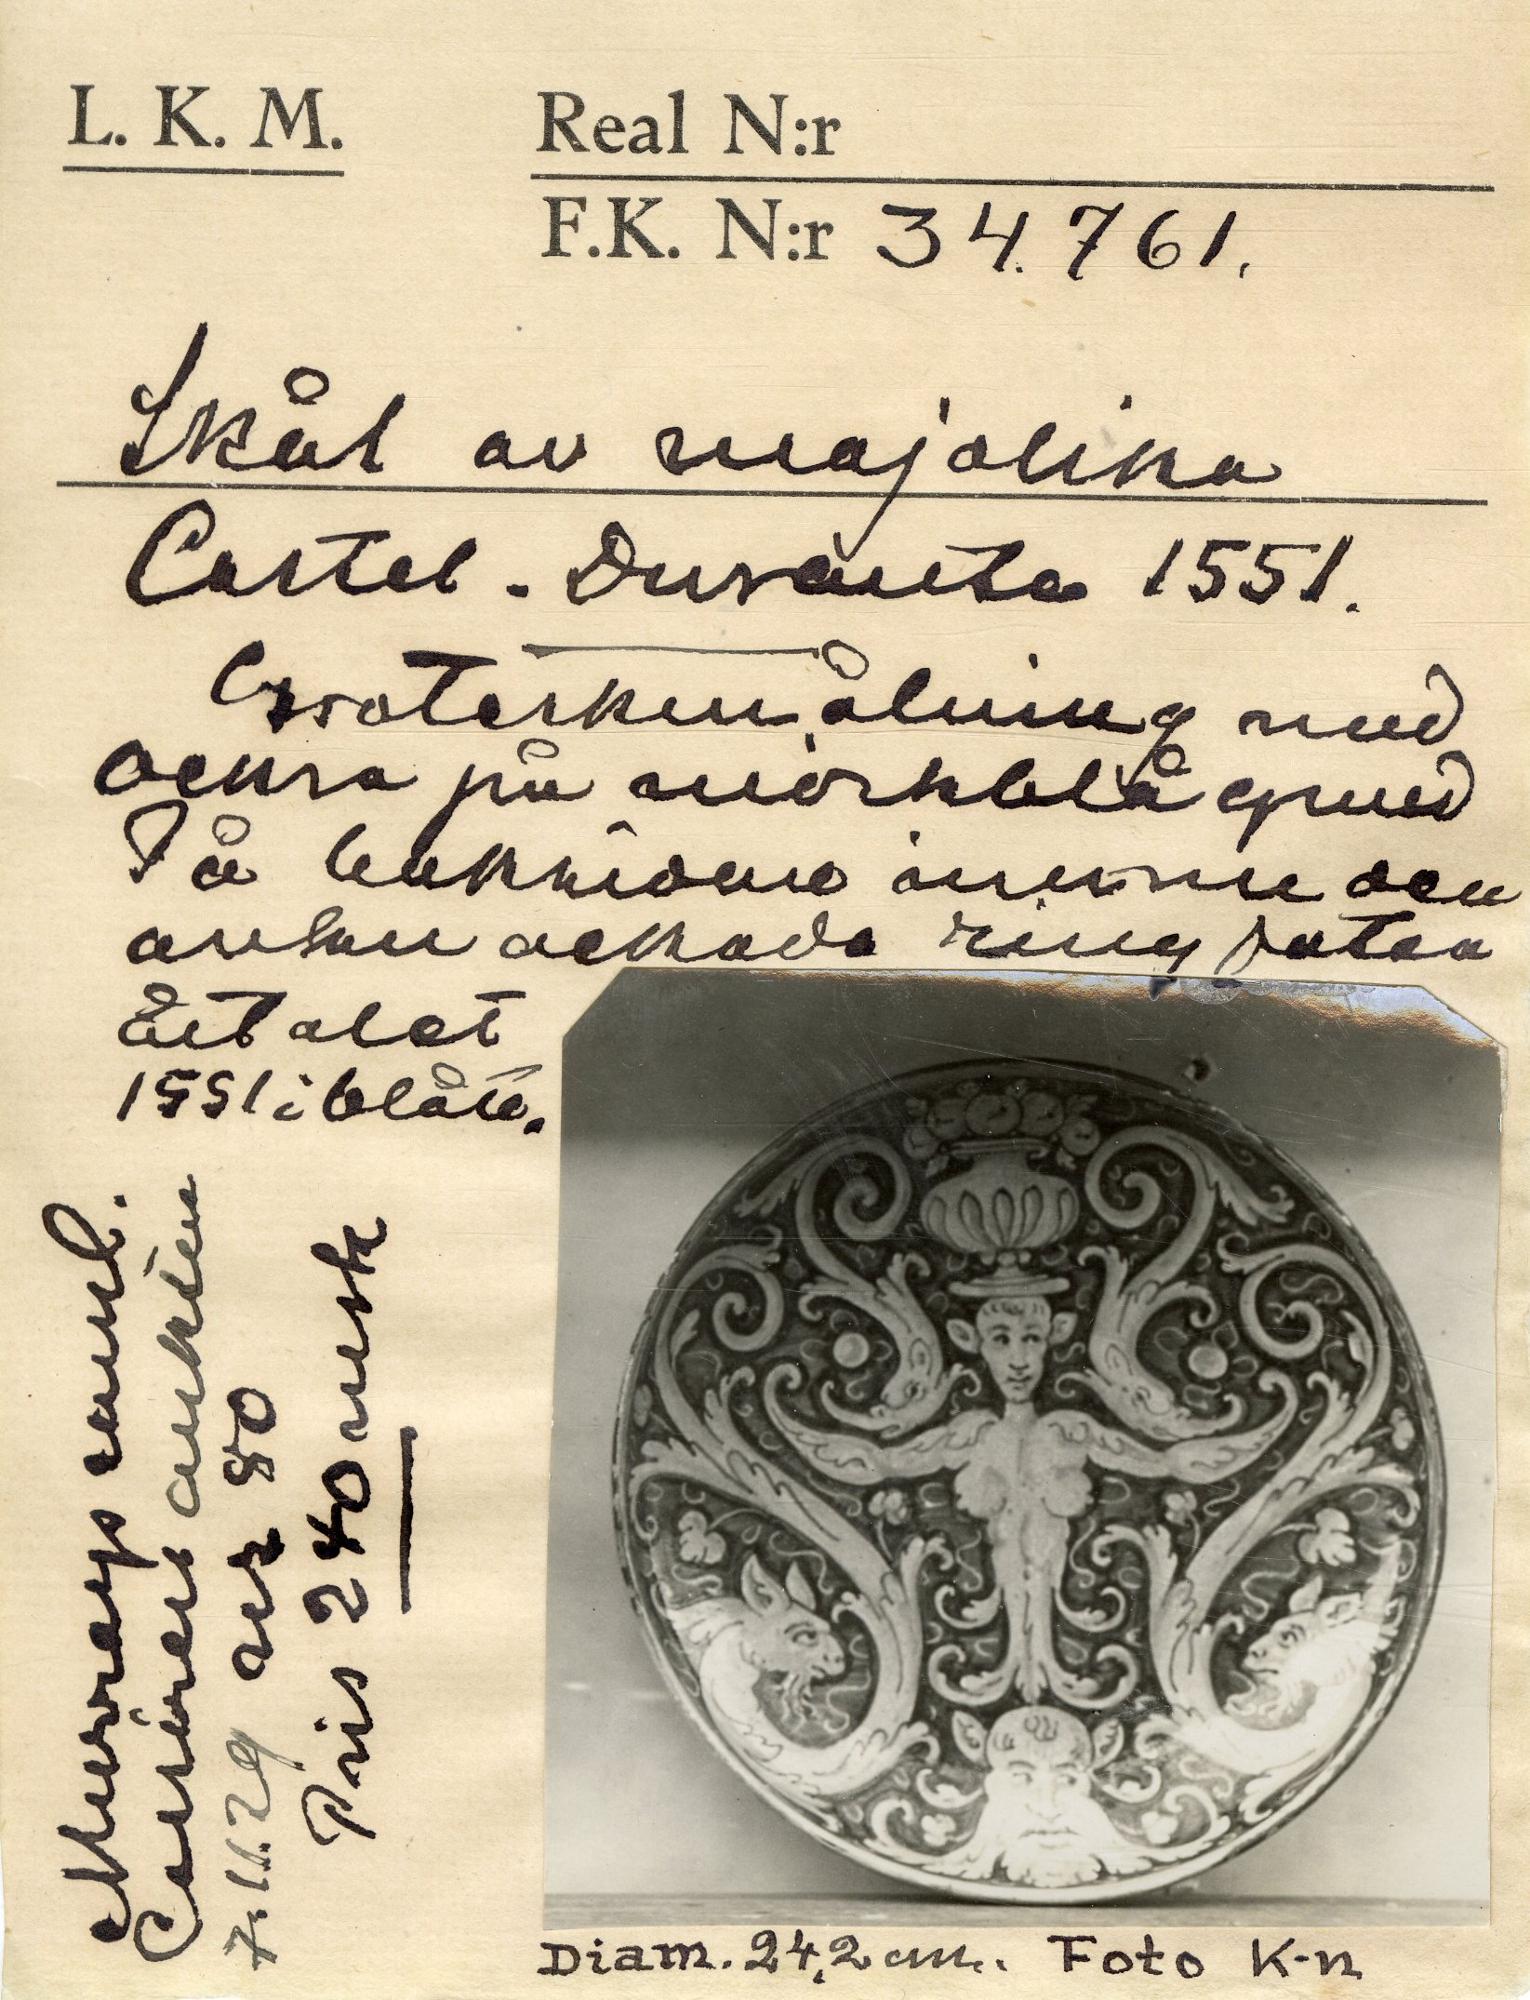 L. K. M.
Real N:r
F.K. N:r 34.761.
Skål av majolika
Castel-Durante 1551.
Groteskmålning med
ockra på mörkblå grund
På baksidans inre
ockrada ring
årtalet
1551 i blått.
Murrays saml.
auktion
7.11.29 nr 80
Pris 240 mk
Diam. 24,2 cm. Foto K-n